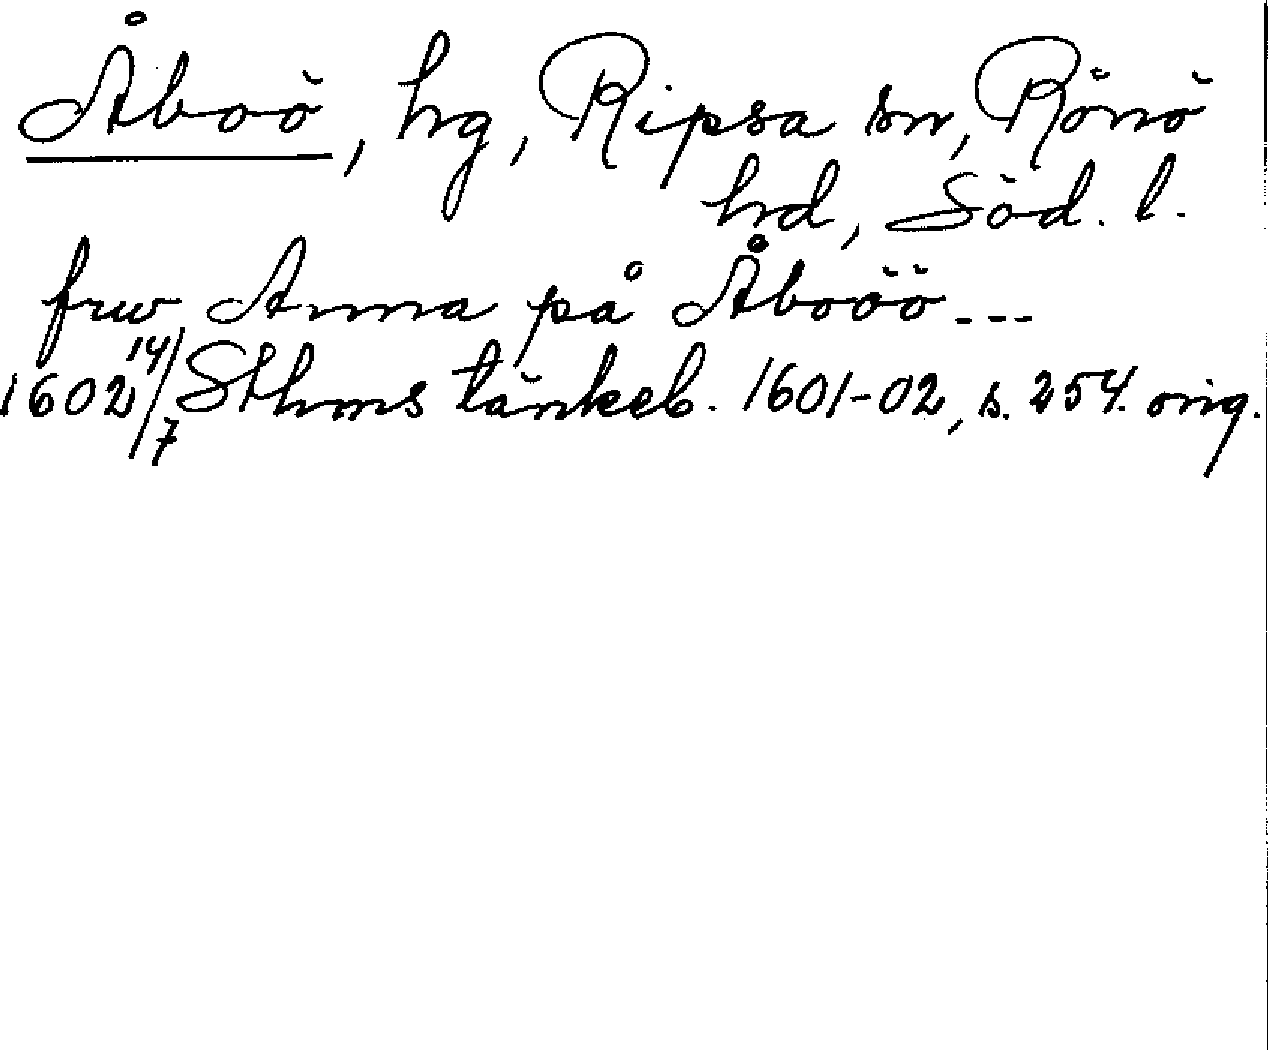 Åboö, hg, Ripsa sn, Rönö
hd, Söd. l.
frw Anna på Åboöö---
1602 14/7 Sthms tänkeb. 1601-02, s. 254. orig.